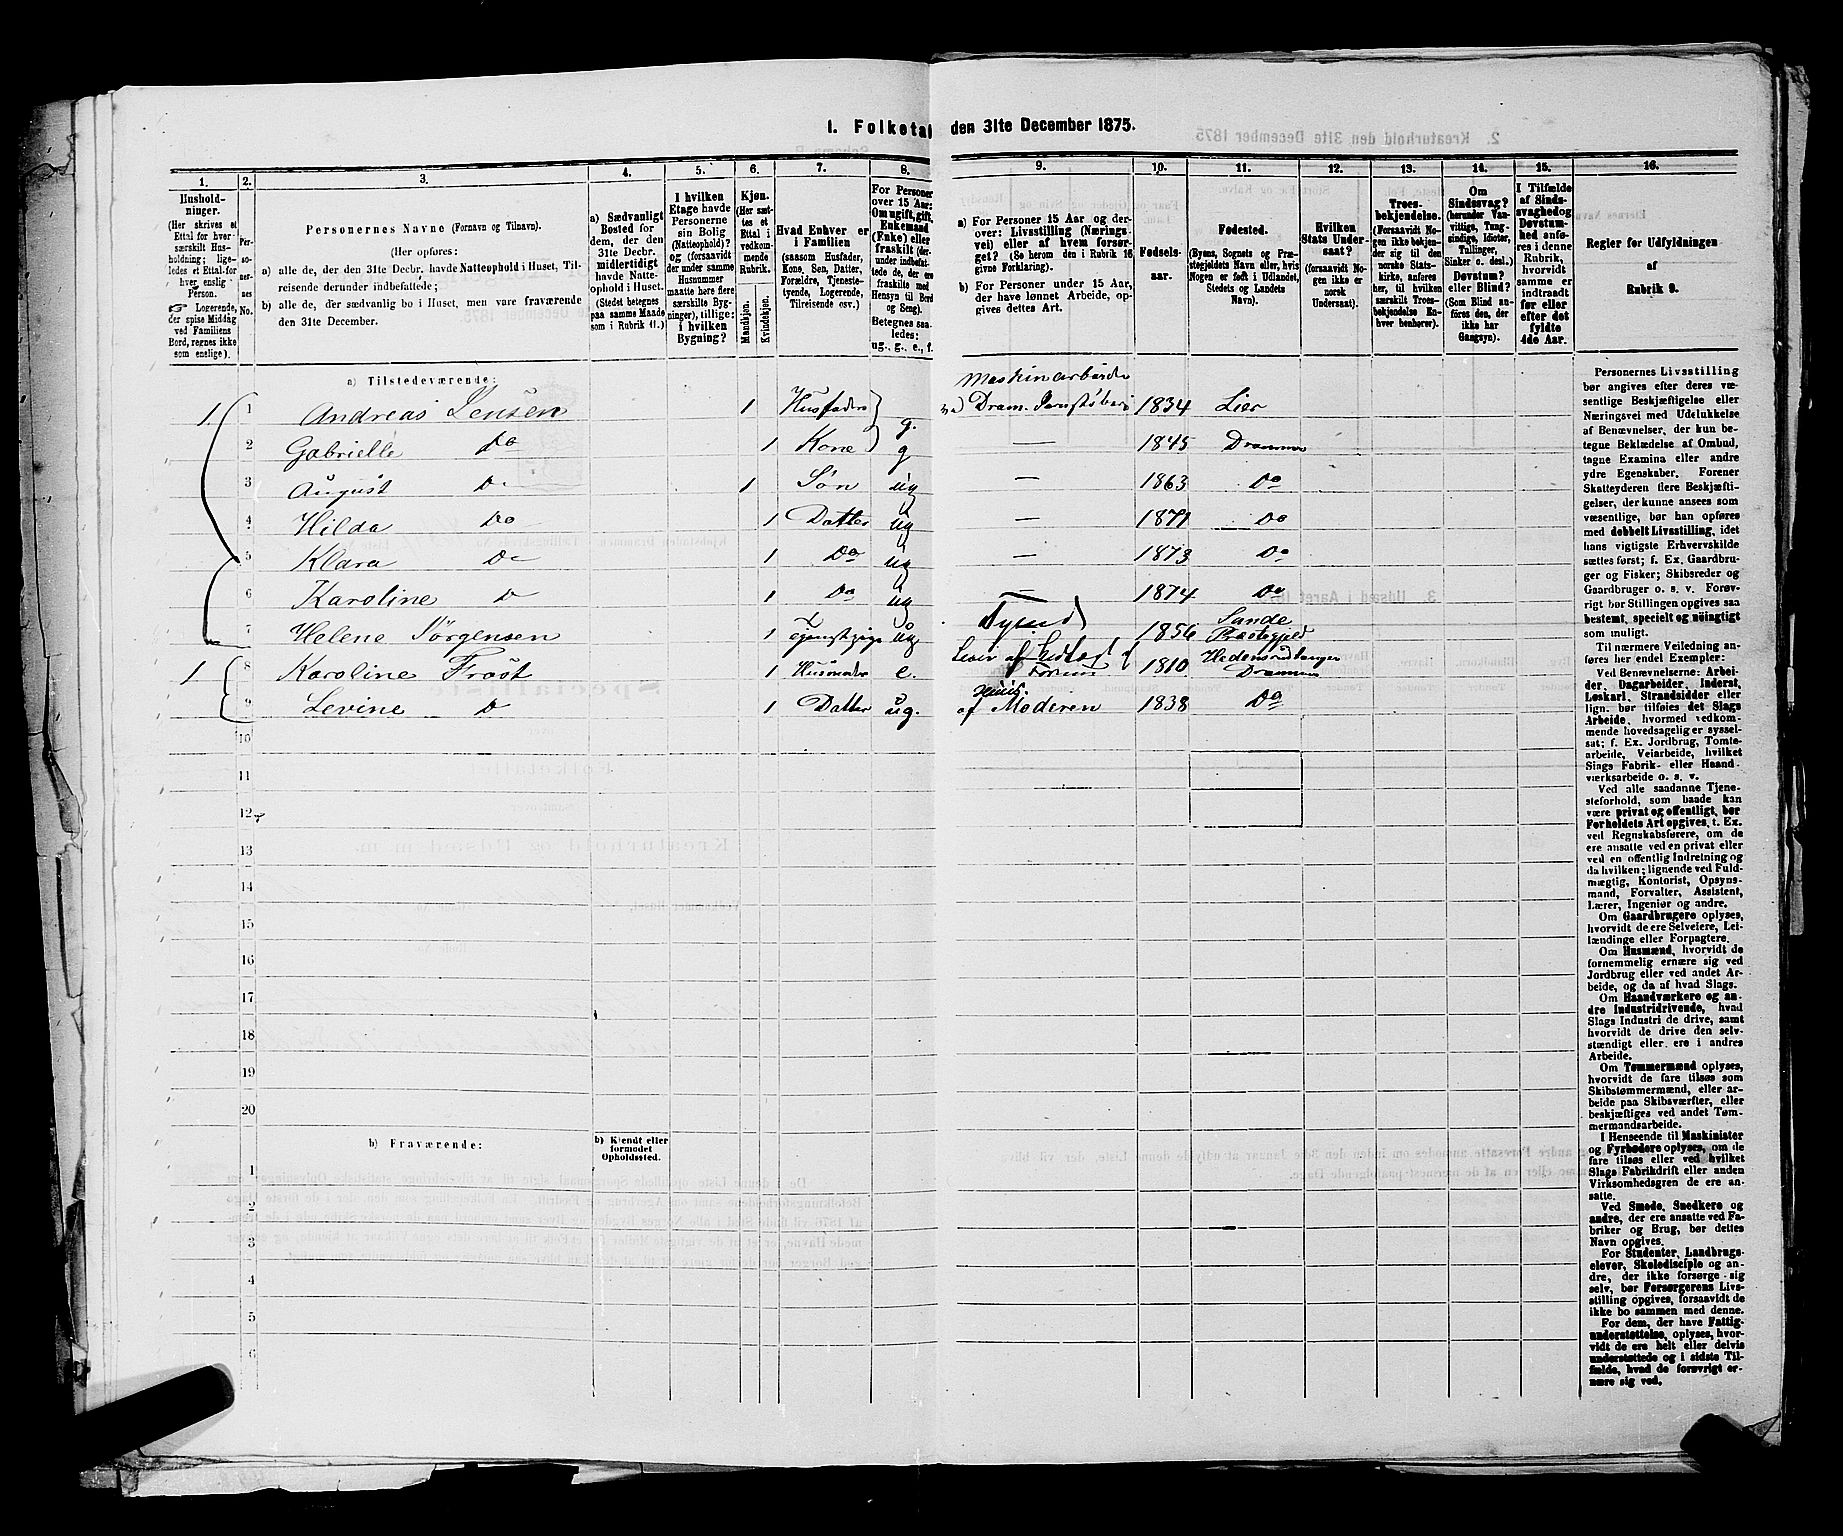 1. Folketal den 31te December 1875.
1.
2.
3.
4.
5.
6.
7.
8.
9.
10.
11.
12.
13.
14.
15.
16.
Husholdninger.
(Her skrives et
Ettal for hver
særskilt Husholdning;
ligeledes
et Ettal for
hver enslig
Person.
☞ Logerende,
der spise Middag
ved Familiens
Bord, regnes ikke
som enslige).
Personernes No.
Personernes Navne (Fornavn og Tilnavn).
(Her opføres:
a) alle de, der den 31te Decbr. havde Natteophold i Huset, Tilreisende
derunder indbefattede;
b) alle de, der sædvanlig bo i Huset, men vare fraværende
den 31te December.
a) Sædvanligt
Bosted for
dem, der den
31te Decbr.
midlertidigt
havde Natteophold
i Huset.
(Stedet betegnes
paa samme Maade
som i Rubrik 11.)
I hvilken
Etage havde
Personerne
sin Bolig
(Natteophold)?
og (forsaavidt
der under samme
Husnummer
maatte høre flere
særskilte Bygninger),
tillige:
i hvilken
Bygning?
Kjøn.
(Her sættes
et
Ettal i
vedkommende
Rubrik.
Mandkjøn.
Kvindekjøn.
Hvad Enhver er
i Familien
(saasom Husfader,
Kone, Søn, Datter,
Forældre, Tjenestetyende,
Logerende,
Tilreisende osv.)
For Personer
over 15 Aar:
Om ugift, gift,
Enkemand
(Enke) eller
fraskilt (derunder
indbefattede
de, der ere
fraskilte med
Hensyn til Bord
og Seng).
Betegnes saaledes:
ug., g., e., f.
a) For Personer 15 Aar og derover:
Livsstilling (Næringsvei)
eller af hvem forsørget?
(Se herom den i Rubrik 16
givne Forklaring).
b) For Personer under 15 Aar,
der have lønnet Arbeide, opgives
dettes Art.
Fødselsaar.
Fødested.
(Byens, Sognets og Præstegjeldets
Navn eller, hvis
Nogen er født i Udlandet,
Stedets og Landets
Navn).
Hvilken
Stats Undersaat?
(forsaavidt Nogen
ikke er
norsk
Undersaat).
Troesbekjendelse.
(Forsaavidt Nogen
ikke bekjender
sig til den
norske Statskirke,
anføres
her, til hvilken
særskilt Troesbekjendelse
Enhver
henhører).
Om
Sindssvag?
(herunder Vanvittige,
Tungsindige,
Idioter,
Tullinger,
Sinker o. desl.)
Døvstum?
eller Blind?
(Som Blind anføres
den, der
ikke har
Gangsyn).
I Tilfælde
af Sindssvaghed
og
Døvstumhed
anføres
i denne
Rubrik,
hvorvidt
samme er
indtraadt
før eller
efter det
fyldte
4de Aar.
Regler for Udfyldningen
af
Rubrik 9.
a) Tilstedeværende:
Maskinarbeider
1 1 Andreas Jensen 1 Husfader g. 1834 Lier
2 Gabrielle Do 1 Kone g — 1845 Drammen
3 August Do 1 Søn ug — 1863 Do
4 Hilda Do 1 Datter ug — 1871 Do
5 Klara Do 1 Do ug — 1873 Do
6 Karoline Do 1 Do ug — 1874 Do
7 Helene Jørgensen 1 Tjenestpige ug Tyend 1856 Sande
Præstegjeld
1 8 Karoline Frøst 1 Husmoder e. 1810
Drammen
9 Levine Do 1 Datter ug. af Moderen 1838 Do
10
11
12
13
14
15
16
17
18
19
20
b) Fraværende:
b) Kjendt eller
formodet
Opholdssted.
1
2
3
4
5
6
Personernes Livsstilling
bør angives efter deres væsentlige
Beskjæftigelse eller
Næringsvei med Udelukkelse
af Benævnelser, der kun betegne
Beklædelse af Ombud,
tagne Examina eller andre
ydre Egenskaber. Forener
Skatteyderen flere Beskjæftigelser,
der kunne ansees som
væsentlige, bør han opføres
med dobbelt Livsstilling, idet
hans vigtigste Erhvervskilde
sættes først; f. Ex. Gaardbruger
og Fisker; Skibsreder og
Gaardbruger o. s. v. Forøvrigt
bør Stillingen opgives saa
bestemt, specielt og nøiagtigt
som muligt.
Til nærmere Veiledning anføres
her endel Exempler:
Ved Benævnelserne: Arbeider,
Dagarbeider, Inderst,
Løskarl, Strandsidder eller
lign. bør tilføies det Slags
Arbeide, hvormed vedkommende
hovedsagelig er sysselsat;
f. Ex. Jordbrug, Tomtearbeide,
Veiarbeide, hvilket
Slags Fabrik- eller Haandværksarbeide
o. s. v.
Ved alle saadanne Tjenesteforhold,
som baade kan
være privat og offentligt, bør
Forholdets Art opgives, t. Ex.
ved Regnskabsførere, om de
ere ansatte ved en privat eller
ved en offentlig Indretning og
da hvilken; lignende ved Fuldmægtig,
Kontorist, Opsynsmand,
Forvalter, Assistent,
Lærer, Ingeniør og andre.
Om Gaardbrugere oplyses,
hvorvidt de ere Selveiere, Leilændinge
eller Forpagtere.
Om Husmænd, hvorvidt de
fornemmelig ernære sig ved
Jordbrug eller ved andet Arbeide,
og da af hvad Slags.
Om Haandværkere og andre
Industridrivende, hvad
Slags Industri de drive, samt
hvorvidt de drive den selvstændigt
eller ere i andres
Arbeide.
Om Tømmermænd oplyses,
hvorvidt de fare tilsøs som
Skibstømmermænd, eller arbeide
paa Skibsværfter, eller
beskjæftiges ved andet Tømmermandsarbeide.
I Henseende til Maskinister
og Fyrbødere oplyses, om de
fare tilsøs eller ved hvilket
Slags Fabrikdrift eller anden
Virksomhedsgren de ere ansatte.
Ved Smede, Snedkere og
andre, der ere ansatte ved Fabriker
og Brug, bør dettes
Navn opgives.
For Studenter, Landbrugselever,
Skoledisciple og andre,
der ikke forsørge sig
selv, bør Forsørgerens Livsstilling
opgives, forsaavidt de
ikke bo sammen med denne.
For dem, der have Fattigunderstøttelse,
oplyses, hvorvidt
de ere helt eller delvis
understøttede og i sidste Tilfælde,
hvad de forøvrigt ernære
sig ved.